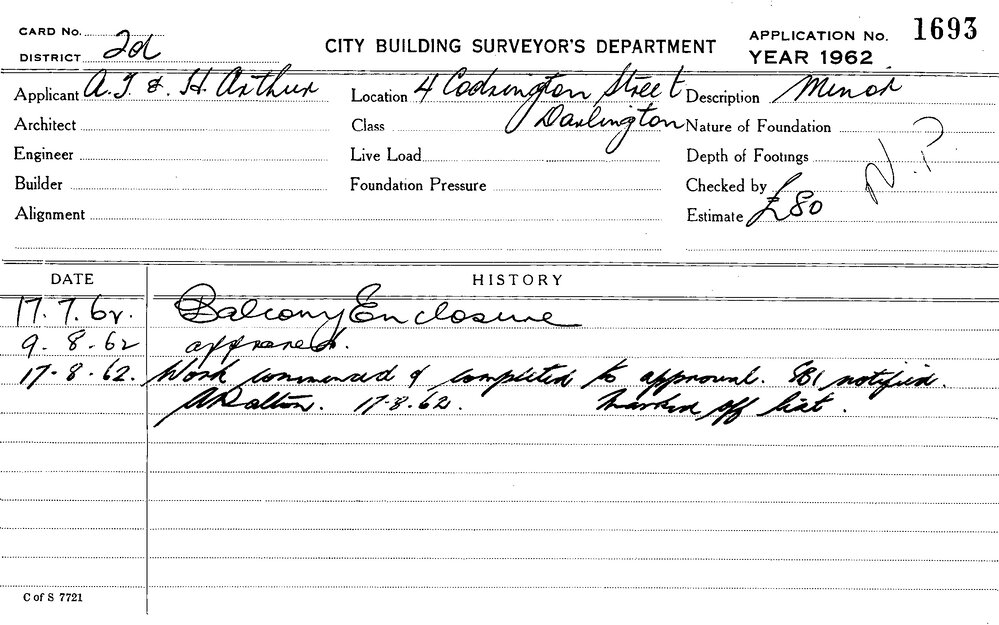 CARD No.
DISTRICT 2d
CITY BUILDING SURVEYOR'S DEPARTMENT
APPLICATION No. 1693
YEAR 1962
Applicant A. J. & H. Arthur Location 4 Codrington Street Description Minor
Architect Class Darlington Nature of Foundation
Engineer Live Load Depth of Footings N.P
Builder Foundation Pressure Checked by
Alignment Estimate £80
DATE HISTORY
17.7.62. Balcony Enclosure
9.8.62 approved.
17.8.62. Work commenced & completed to approval. notified.
A Dalton. 17.8.62. Marked off list.
C of S 7721